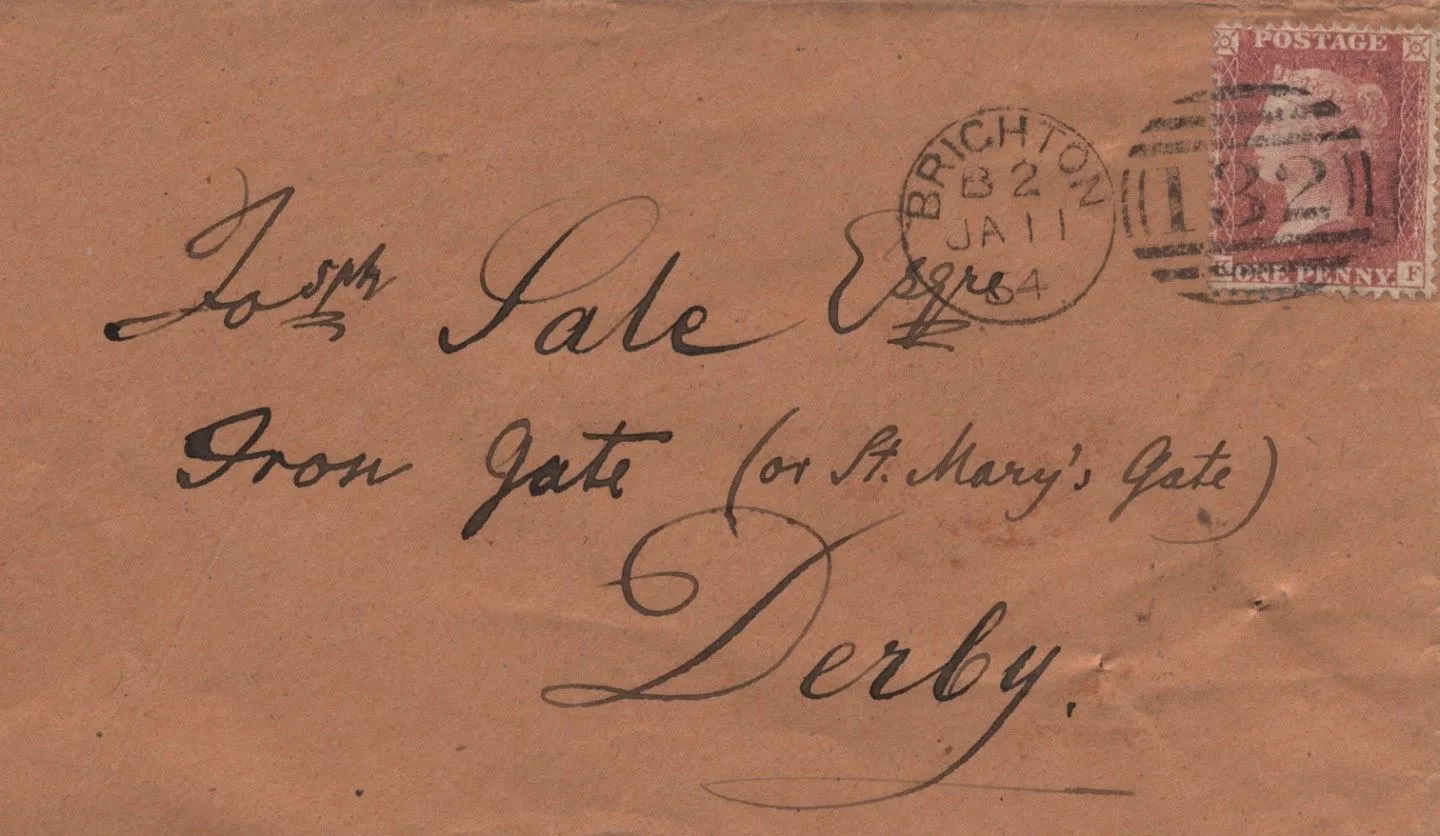 POSTAGE
BRIGHTON
B 2
JA 11
64
132
K ONE PENNY. F
Josph Sale Esqre
Iron Gate (or St. Mary's Gate)
Derby.